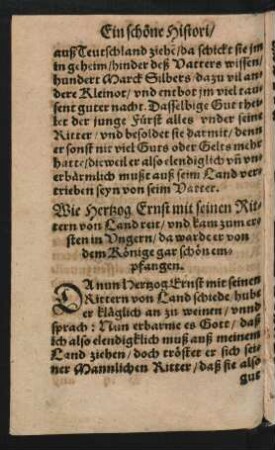 Ein schöne Histori/
auß Teutschland ziehe/ da schickt sie jm
in geheim/ hinder deß Vatters wissen/
hundert Marck Silbers/ dazu vil an
dere Kleinot/ vnd entbot jm viel tau
sent guter nacht. Dasselbige Gut thei
let der junge Fürst alles vnder seine
Ritter/ vnd besoldet sie darmit/ denn
er sonst nit viel Guts oder Gelts mehr
hatte/ dieweil er also elendiglich vñ vn
erbärmlich mußt auß seim Land ver
trieben seyn von seim Vatter.
Wie Hertzog Ernst mit seinen Rit
tern von Land reit/ vnd kam zum er
sten in Vngern/ da ward er von
dem Könige gar schön em
pfangen.
DA nun Hertzog Ernst mit seinen
Rittern von Land schiede/ hube
er kläglich an zu weinen/ vnnd
sprach: Nun erbarme es Gott/ daß
ich also elendigklich muß auß meinem
Land ziehen/ doch tröstet er sich sei
ner Mannlichen Ritter/ daß sie also
gut